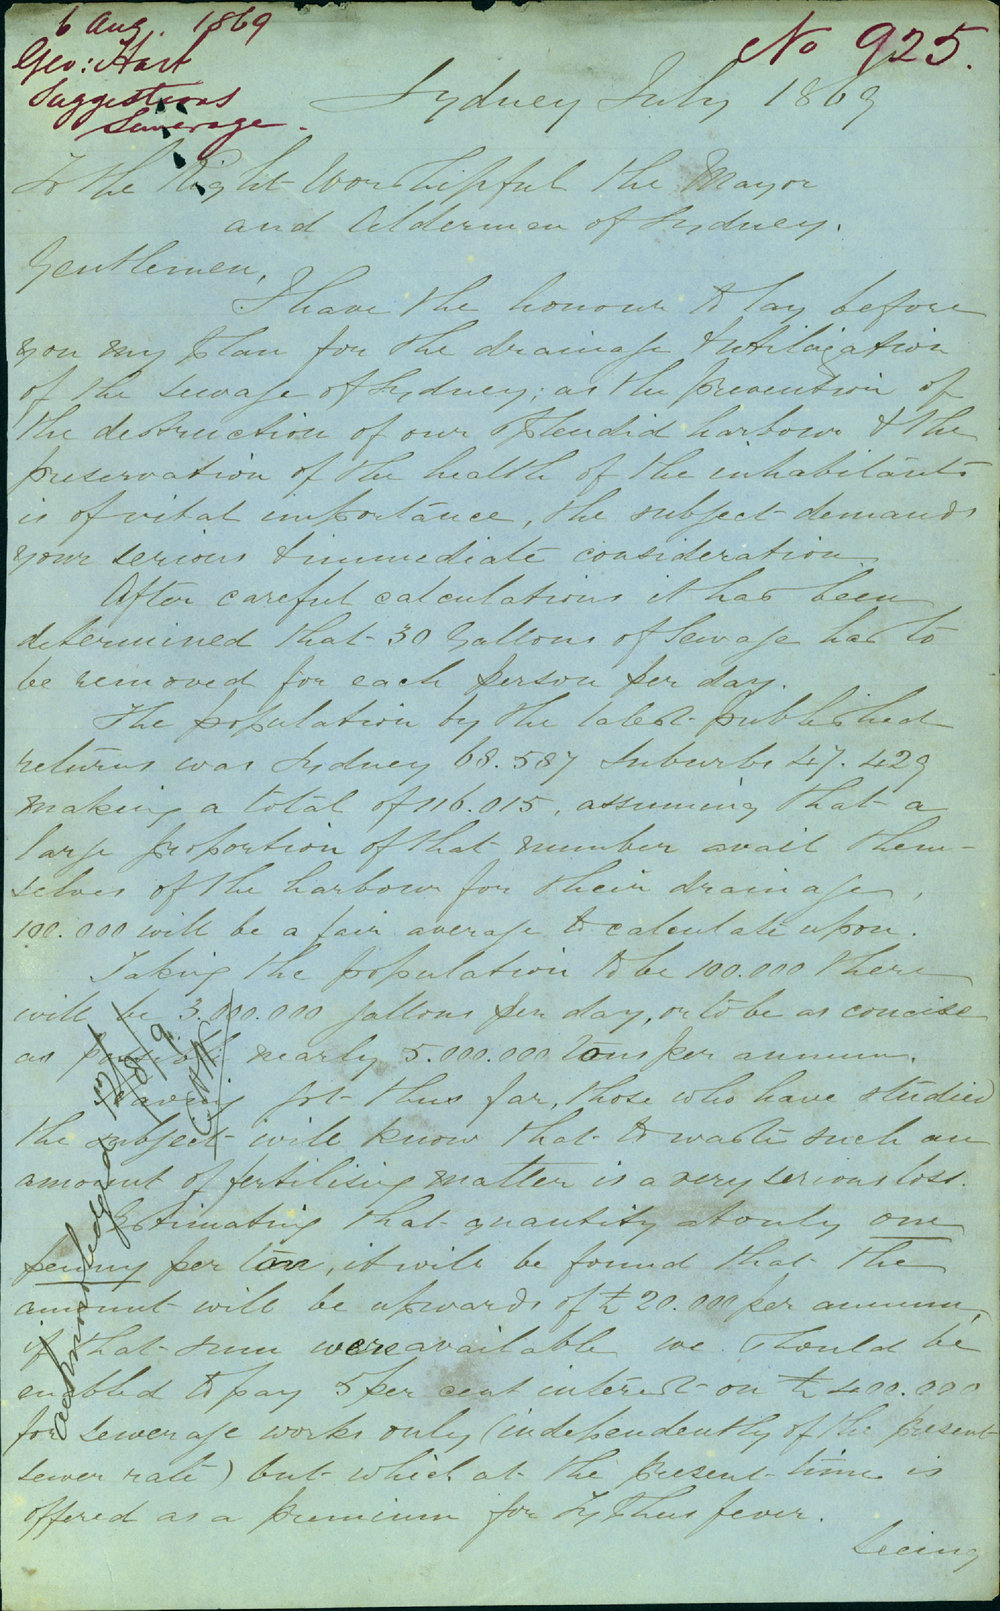 6 Aug. 1869
Geo: Hart
Suggestions
Sewerage.
No 925.
Sydney July 1869
To the Right Worshipful the Mayor
and Aldermen of Sydney.
Gentlemen,
I have the honour to lay before
you my plan for the drainage & utilization
of the sewage of Sydney; as the prevention of
the destruction of our splendid harbour & the
preservation of the health of the inhabitants
is of vital importance, the subject demands
your serious & immediate consideration
After careful calculations it has been
determined that 30 Gallons of Sewage has to
be removed for each person per day.
The population by the latest published
returns was Sydney 68.587 Suburbs 47.429
making a total of 116.015, assuming that a
large proportion of that number avail them-
selves of the harbour for their drainage,
100.000 will be a fair average to calculate upon.
Taking the population to be 100.000 there
will be 3.000.000 gallons per day, or to be as concise
as possible nearly 5.000.000 tons per annum.
Having got thus far, those who have studied
the subject will know that to waste such an
amount of fertilising matter is a very serious loss.
Estimating that quantity at only one
penny per ton, it will be found that the
amount will be upwards of £20.000 per annum,
if that sum were available we should be
enabled to pay 5 per cent interest on £400.000
for sewerage works only (independently of the present
sewer rate) but which at the present time is
offered as a premium for Typhus fever.
Seeing
acknowledged